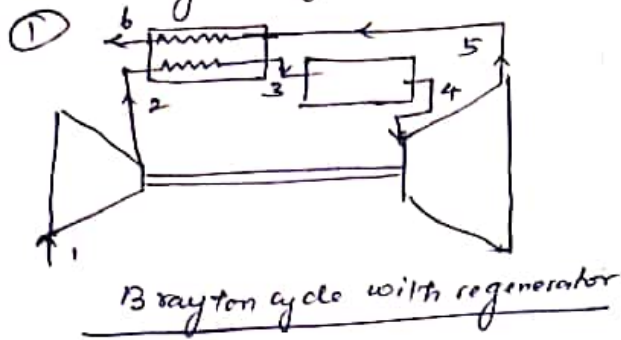 ①
6
5
2
3
4
1
Brayton cycle with regenerator